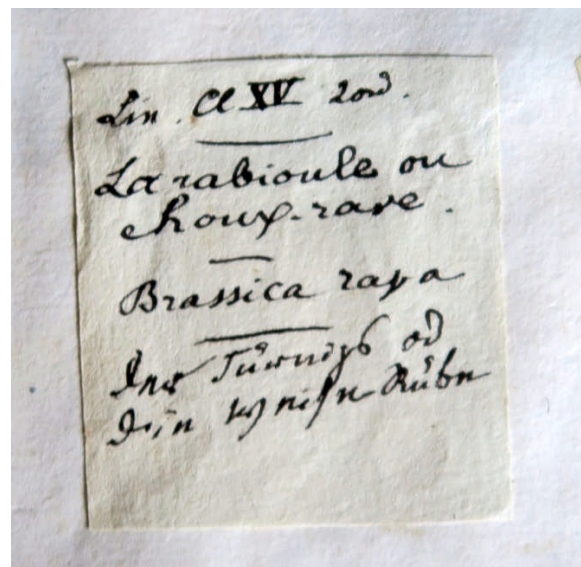 Lin. Cl XV 2 ord.
La rabioule ou
choux-rave.
Brassica rapa
Der Turnips od
Die weiße Rübe